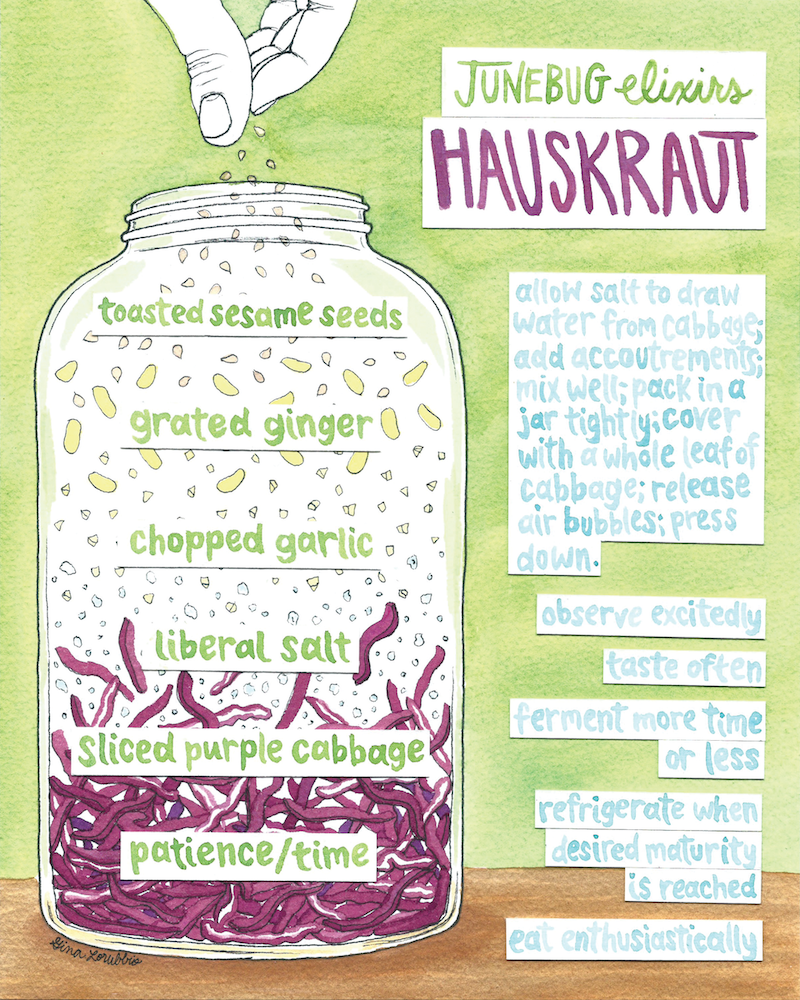 JUNEBUG elixirs
HAUSKRAUT
toasted sesame seeds
grated ginger
chopped garlic
liberal salt
sliced purple cabbage
patience/time
allow salt to draw
water from cabbage;
add accoutrements;
mix well; pack in a
jar tightly; cover
with a whole leaf of
cabbage; release
air bubbles; press
down.
observe excitedly
taste often
ferment more time
or less
refrigerate when
desired maturity
is reached
eat enthusiastically
Gina Lorubbio